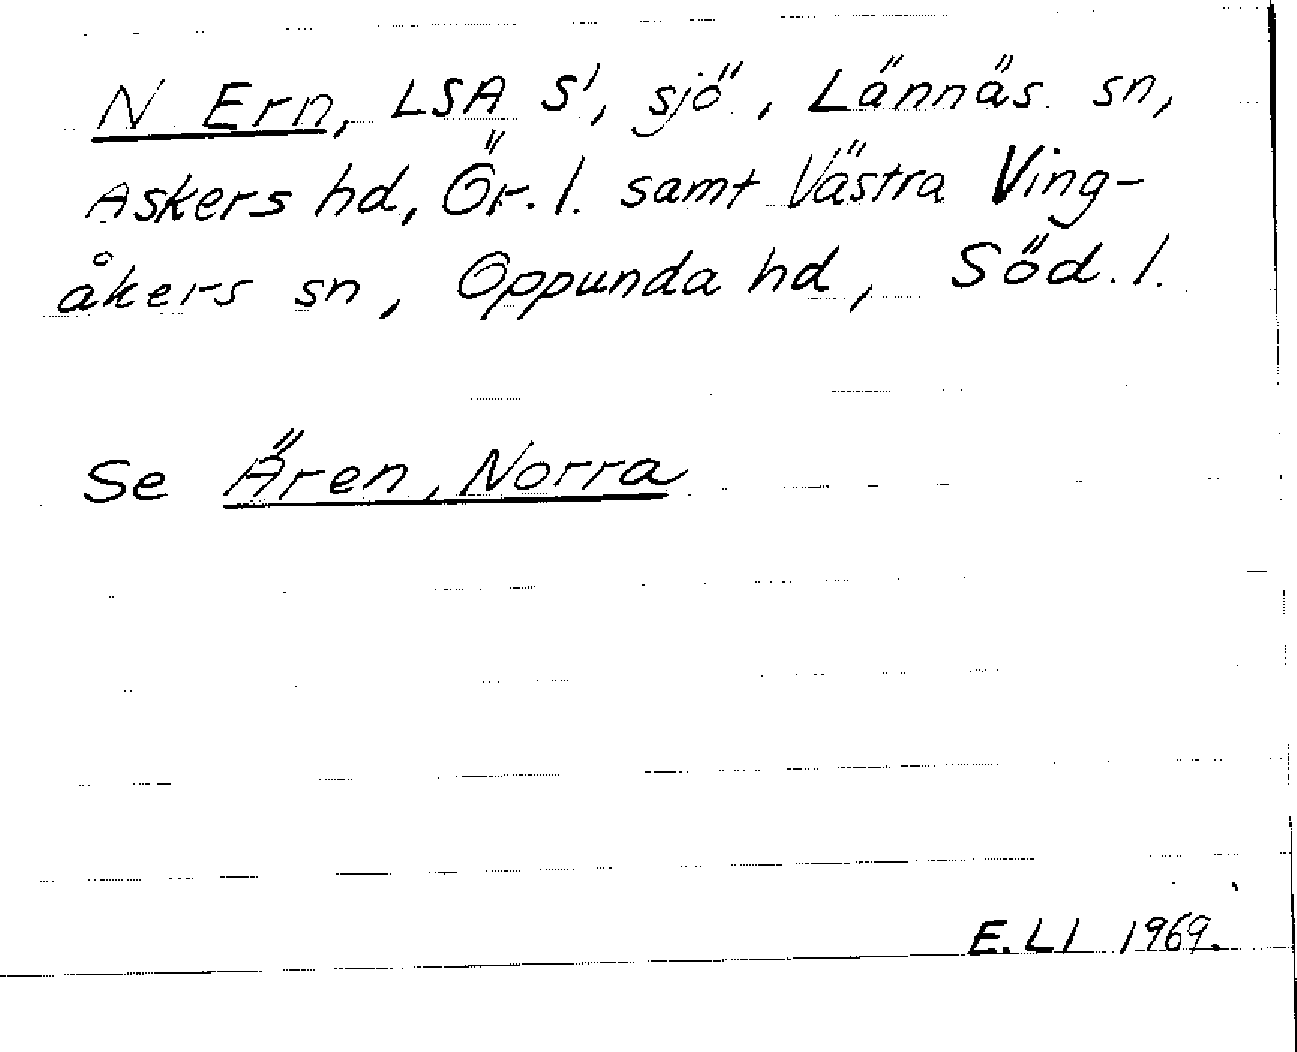 N Ern, LSA S', sjö, Lännäs sn,
Askers hd, Ör. l. samt Västra Ving-
åkers sn, Oppunda hd, Söd. l.
Se Ären, Norra
E. Ll 1969.